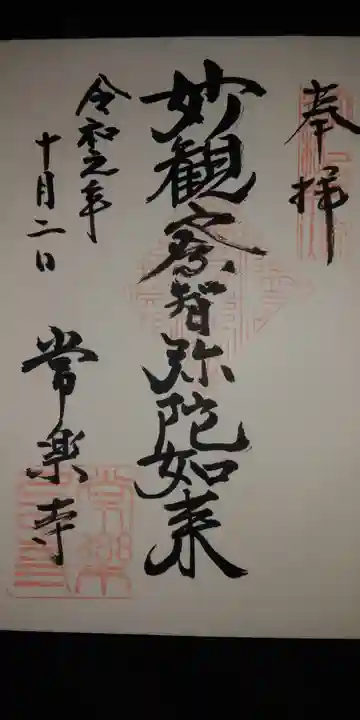 奉拝
妙観察智弥陀如来
令和元年
十月二日
常楽寺
常樂寺